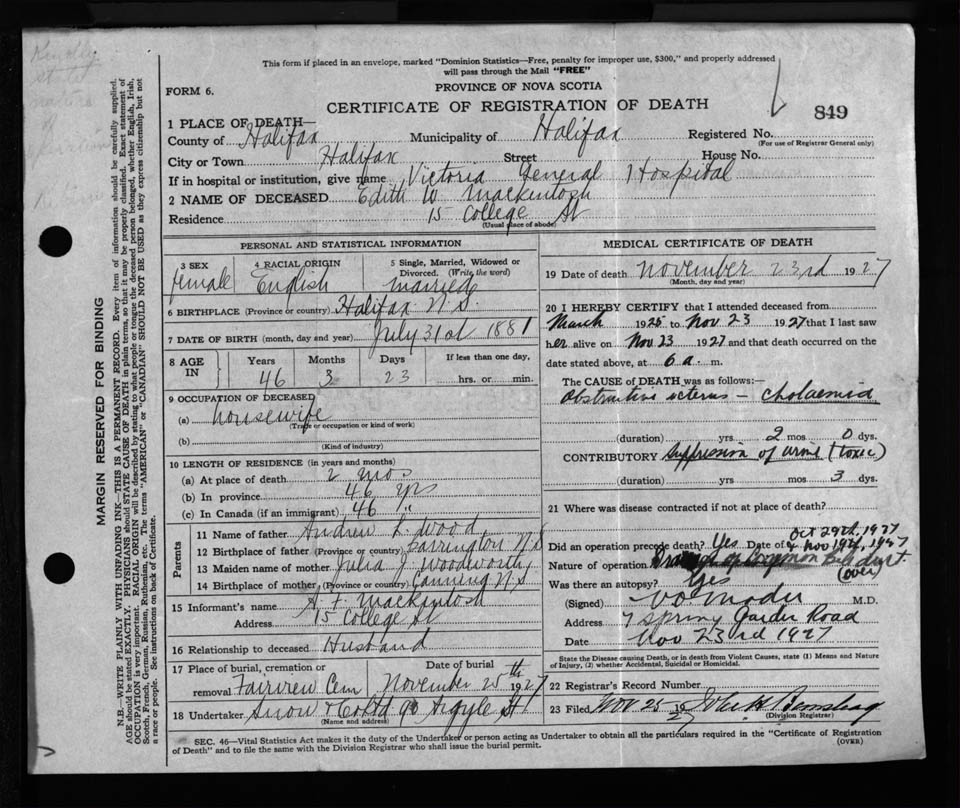 Kindly
state
nature
of
This form if placed in an envelope, marked "Dominion Statistics—Free, penalty for improper use, $300," and properly addressed
will pass through the Mail "FREE"
FORM 6.
PROVINCE OF NOVA SCOTIA
CERTIFICATE OF REGISTRATION OF DEATH
849
1 PLACE OF DEATH—
County of Halifax Municipality of Halifax Registered No.
(For use of Registrar General only)
City or Town Halifax Street House No.
If in hospital or institution, give name Victoria General Hospital
2 NAME OF DECEASED Edith W. Mackintosh
Residence 15 College St
(Usual place of abode)
PERSONAL AND STATISTICAL INFORMATION
3 SEX female
4 RACIAL ORIGIN English
5 Single, Married, Widowed or
Divorced. (Write the word)
married
6 BIRTHPLACE (Province or country) Halifax N.S.
7 DATE OF BIRTH (month, day and year) July 31st 1881
8 AGE IN
Years Months Days If less than one day,
46 3 23 hrs. or min.
9 OCCUPATION OF DECEASED
(a) housewife
(Trade or occupation or kind of work)
(b)
(Kind of industry)
10 LENGTH OF RESIDENCE (in years and months)
(a) At place of death 2 mo.
(b) In province 46 yrs
(c) In Canada (if an immigrant) 46 "
Parents
11 Name of father Andrew K. Wood
12 Birthplace of father (Province or country) Barrington N.S
13 Maiden name of mother Julia J Woodworth
14 Birthplace of mother (Province or country) Canning N.S.
15 Informant's name A. F. Mackintosh
Address 15 College St
16 Relationship to deceased Husband
17 Place of burial, cremation or Date of burial
removal Fairview Cem November 25th 1927
18 Undertaker Snow & Co Ltd 90 Argyle St
MEDICAL CERTIFICATE OF DEATH
19 Date of death November 23rd 1927
(Month, day and year)
20 I HEREBY CERTIFY that I attended deceased from
March 1925 to Nov 23 1927 that I last saw
her alive on Nov 23 1927 and that death occurred on the
date stated above, at 6 a. m.
The CAUSE OF DEATH was as follows:—
Obstructive icterus — cholaemia
(duration) yrs 2 mos 0 dys.
CONTRIBUTORY Suppression of urine (toxic)
(duration) yrs mos 3 dys.
21 Where was disease contracted if not at place of death?
Oct 29th, 1927
Did an operation precede death? Yes Date of & Nov 19th, 1927
Nature of operation Drainage of Common Bile duct.
Was there an autopsy? Yes (over)
(Signed) V.O. Mader M.D.
Address 7 Spring Garden Road
Date Nov 23rd 1927
State the Disease causing Death, or in death from Violent Causes, state (1) Means and Nature
of Injury, (2) whether Accidental, Suicidal or Homicidal.
22 Registrar's Record Number
23 Filed Nov 25 1927
(Division Registrar)
SEC. 46—Vital Statistics Act makes it the duty of the Undertaker or person acting as Undertaker to obtain all the particulars required in the "Certificate of Registration
of Death" and to file the same with the Division Registrar who shall issue the burial permit. (OVER)
MARGIN RESERVED FOR BINDING
N.B.—WRITE PLAINLY WITH UNFADING INK—THIS IS A PERMANENT RECORD. Every item of information should be carefully supplied.
AGE should be stated EXACTLY. PHYSICIANS should STATE CAUSE OF DEATH in plain terms, so that it may be properly classified. Exact statement of
OCCUPATION is very important. RACIAL ORIGIN will be described by stating to what people or tongue the deceased person belonged, whether English, Irish,
Scotch, French, German, Russian, Ruthenian, etc. The terms "AMERICAN" or "CANADIAN" SHOULD NOT BE USED as they express citizenship but not
a race or people. See instructions on back of Certificate.